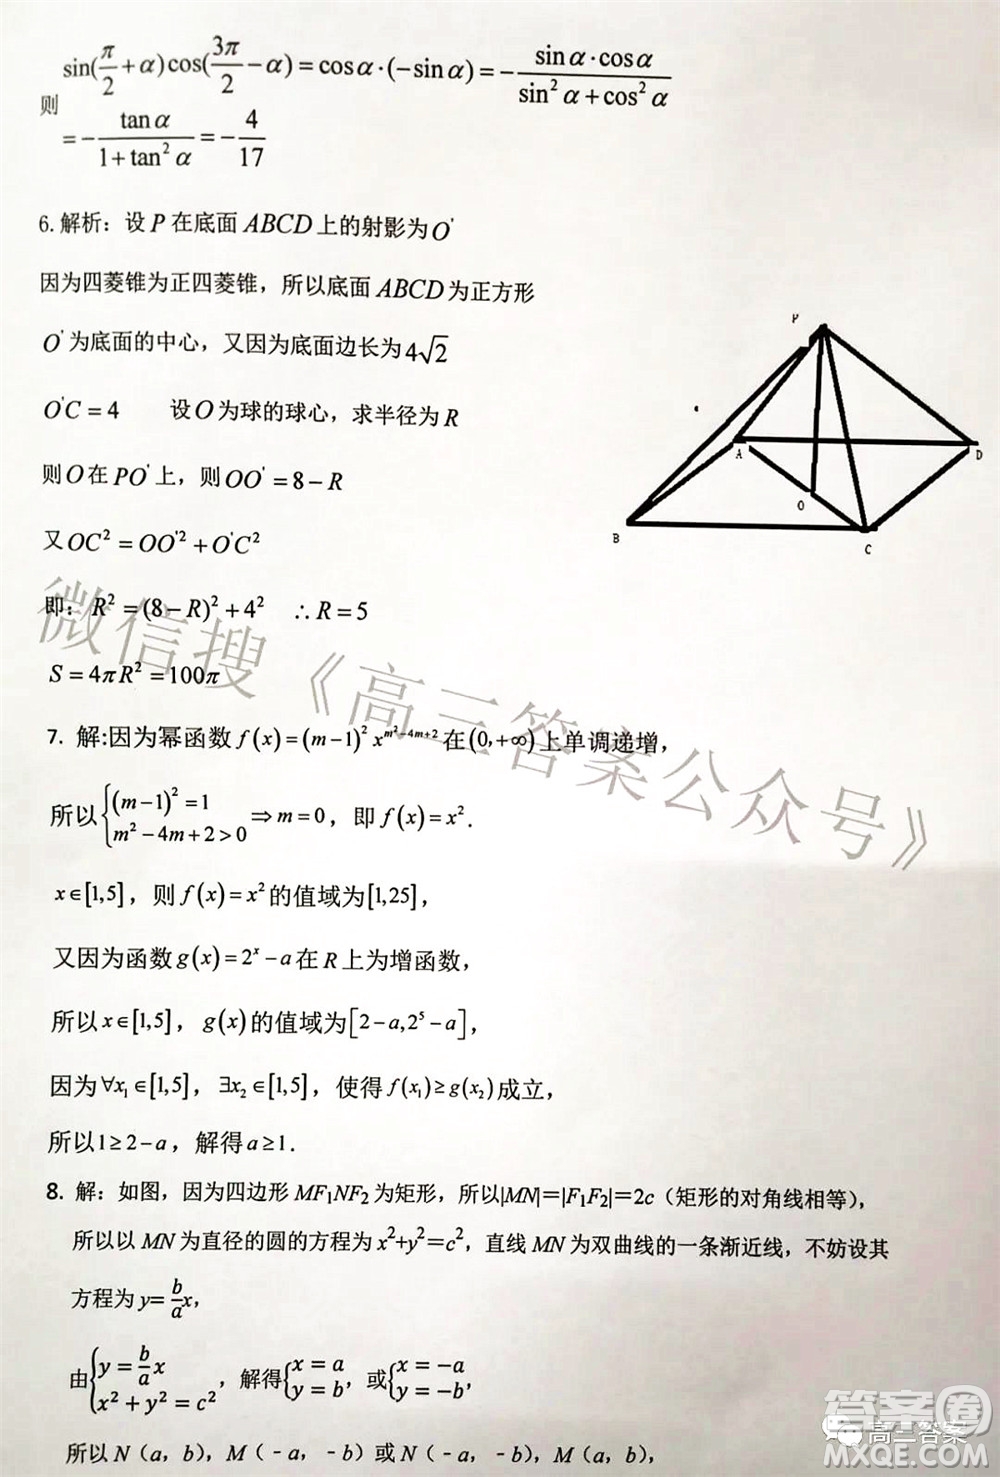 则 sin(π/2+α)cos(3π/2−α)=cosα·(−sinα)=−(sinα·cosα)/(sin²α+cos²α)
=−tanα/(1+tan²α)=−4/17
6.解析：设 P 在底面 ABCD 上的射影为 O'
因为四菱锥为正四菱锥，所以底面 ABCD 为正方形
O' 为底面的中心，又因为底面边长为 4√2
O'C=4 设 O 为球的球心，求半径为 R
则 O 在 PO' 上，则 OO'=8−R
又 OC²=OO'²+O'C²
即：R²=(8−R)²+4² ∴R=5
S=4πR²=100π
P
A
D
O
B
C
7. 解:因为幂函数 f(x)=(m−1)²x^(m²−4m+2) 在(0,+∞)上单调递增，
所以{(m−1)²=1
m²−4m+2>0 ⇒m=0，即 f(x)=x².
x∈[1,5]，则 f(x)=x² 的值域为[1,25]，
又因为函数 g(x)=2ˣ−a 在 R 上为增函数，
所以 x∈[1,5]，g(x)的值域为[2−a,2⁵−a]，
因为∀x₁∈[1,5]，∃x₂∈[1,5]，使得 f(x₁)≥g(x₂)成立，
所以1≥2−a，解得a≥1.
8. 解：如图，因为四边形 MF₁NF₂ 为矩形，所以|MN|=|F₁F₂|=2c（矩形的对角线相等），
所以以 MN 为直径的圆的方程为 x²+y²=c²，直线 MN 为双曲线的一条渐近线，不妨设其
方程为 y=b/a x，
由{y=b/a x
x²+y²=c²，解得{x=a
y=b，或{x=−a
y=−b，
所以 N（a，b），M（-a，-b）或 N（-a，-b），M（a，b），
微信搜《高三答案公众号》
答案圈
高三答案
MXQE.COM